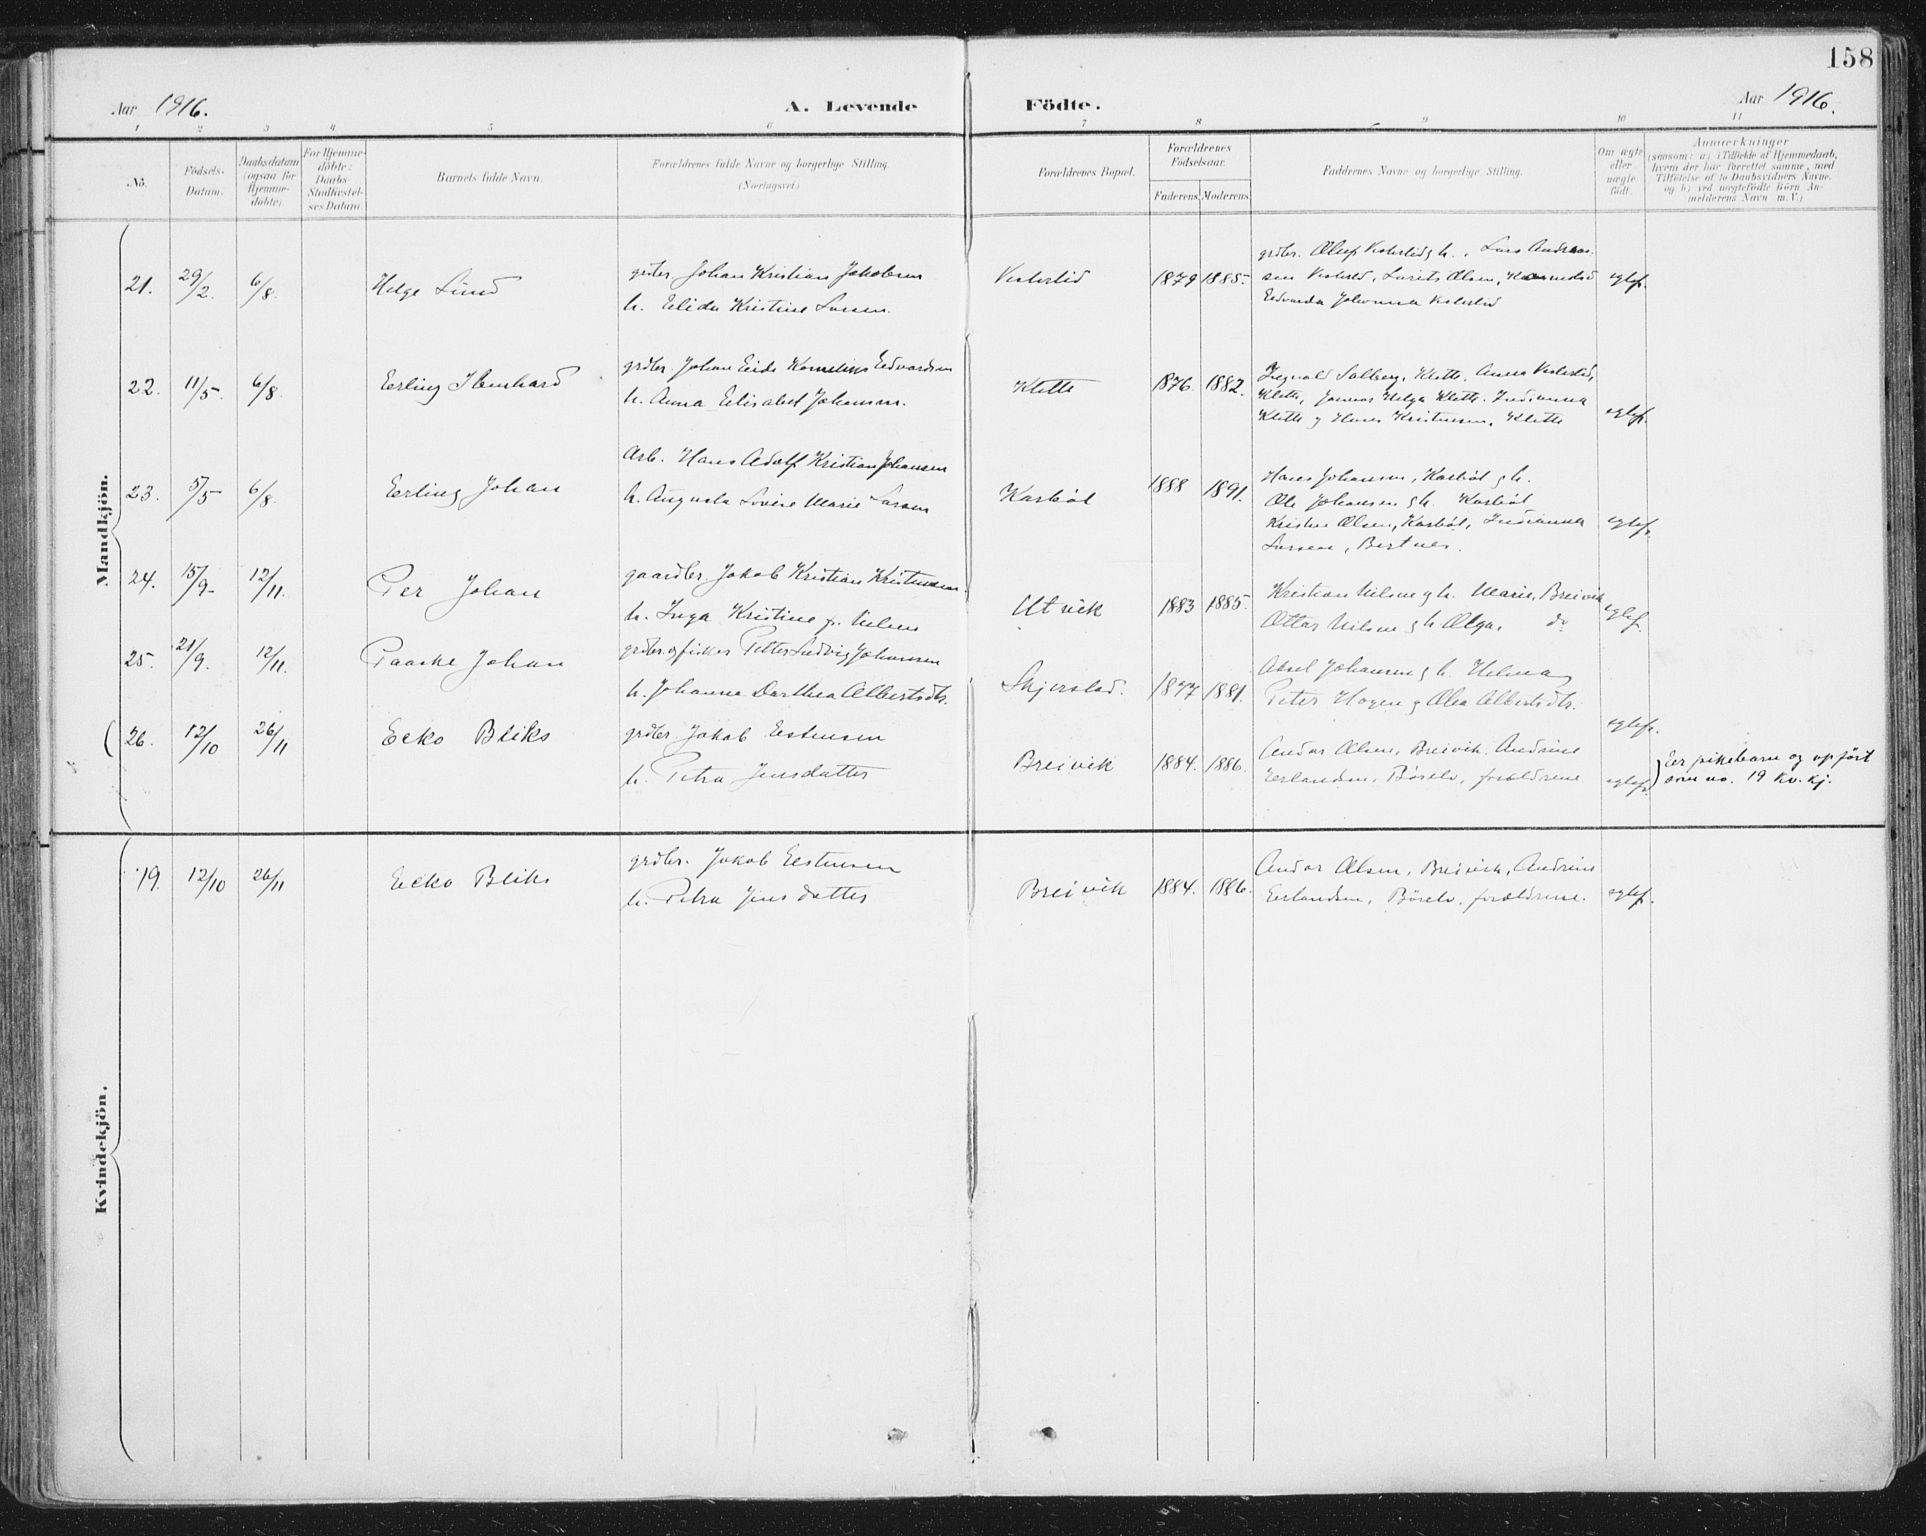 158
Aar 1916.
A. Levende Födte.
Aar 1916.
1 2 3 4 5 6 7 8 9 10 11
No.
Födsels-
Datum.
Daabsdatum
(ogsaa for
Hjemme-
döbte).
For Hjemme-
döbte:
Daabs-
Stadfæstel-
ses Datum.
Barnets fulde Navn.
Forældrenes fulde Navne og borgerlige Stilling
(Næringsvei)
Forældrenes Bopæl.
Forældrenes
Födselsaar.
Faderens Moderens
Faddernes Navne og borgerlige Stilling.
Om ægte
eller
uægte
födt.
Anmerkninger
(saasom: a) i Tilfælde af Hjemmedaab,
hvem der har forrettet samme, med
Tilföielse af to Daabsvidners Navne,
og b) ved uægtefödte Börn An-
melderens Navn m.V.)
Mandkjön.
21. 29/2. 6/8. Helge Lund
grdbr Johan Kristian Jakobsen
h. Elida Kristine Larsen.
1879 1885.
grdbr. Oluf h., Lars Andrea-
sen Lurits Olsen,
Edvarda Johanna
egtef.
22. 11/5. 6/8. Erling Bernhard
grdbr. Johan Eide Kornelius Edvardsen
h. Anna Elisabet Johansen.
Klette 1876. 1882.
Ingvald Solberg, Klette. Anna
Klette, Helga Klette.
Klette og Hans Kristensen, Klette
egtef.
23. 5/5 6/8. Erling Johan
Arb. Hans Adolf Kristian Johansen
h. Augusta Lovise Marie Larsen
Karbøl 1888 1891.
Hans Johansen, Karbøl og h.
Ole Johansen og h. Karbøl
Kristine Olsen, Karbøl,
Larsen, Bertnes.
egtef.
24. 15/9. 12/11. Per Johan
gaardbr. Jakob Kristian Kristensen.
h. Inga Kristine f. Nilsen
Utvik 1883 1885.
Kristian Nilsen og h. Marie, Breivik
Ottar Nilsen og h. Olga, do
egtef.
25. 21/9. 12/11. Paaske Johan
grdbr. og fisker Petter Ludvig Johansen
h. Johanna Dorthea Albertsdtr.
Skjerstad. 1877 1881.
Aksel Johansen og h. Helma
Peter Hagen og Olea Albertsdtr.
egtef.
26. 12/10 26/11 Ecko Bliks
grdbr. Jakob Estensen
h. Petra Jensdatter
Breivik 1884. 1886.
Andor Olsen, Breivik, Andrine
Erlandsen, Børelv, forældrene
egtef.
Er pikebarn og opført
som no. 19 Kv. kj.
Kvindekjön.
19. 12/10 26/11 Ecko Bliks
grdbr. Jakob Estensen
h. Petra Jensdatter
Breivik 1884. 1886.
Andor Olsen, Breivik, Andrine
Erlandsen, Børelv, forældrene.
egtef.